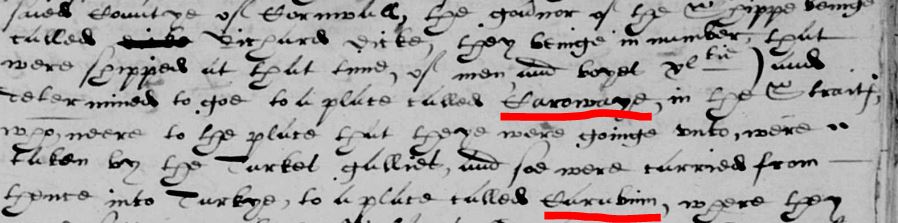 saied Countye of Cornwall, the gouner of the Shippe beinge
called Richard Dicke, they beinge in number, that
were shipped at that time, of men and boyes xl tie ) and
determined to goe to a place called Carowaye, in the Straits,
who, neere to the place that theye were goinge vnto, were
taken by the Turkes gallies, and soe were carried from
thence into Turkye, to a place called Carabinn, where they